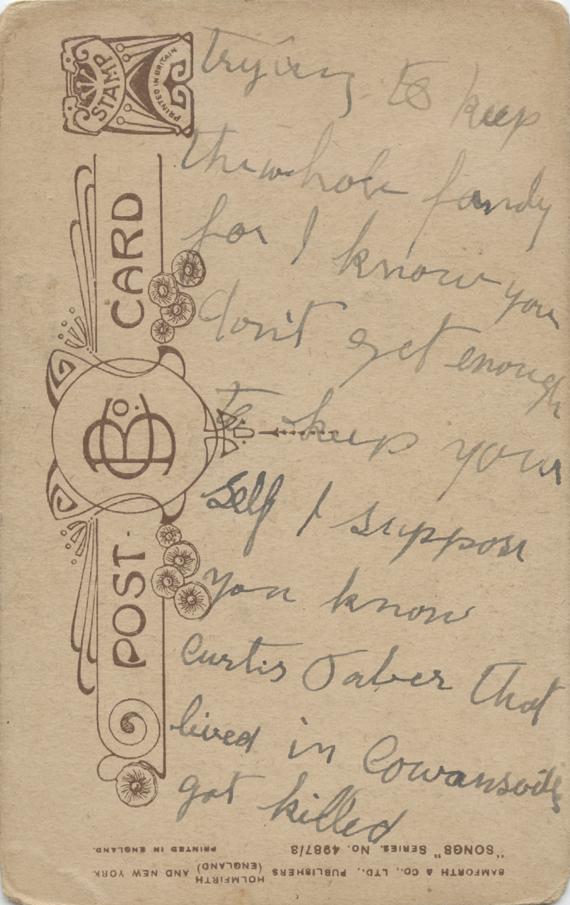 trying to keep
the whole family
for I know you
don't get enough
to keep your
self I suppose
you know
Curtis Taber that
lived in Cowansville
got killed
STAMP
PRINTED IN BRITAIN
POST CARD
B & Co.
BAMFORTH & CO., LTD., PUBLISHERS (ENGLAND) HOLMFIRTH AND NEW YORK
"SONGS" SERIES. NO. 4987/3
PRINTED IN ENGLAND.